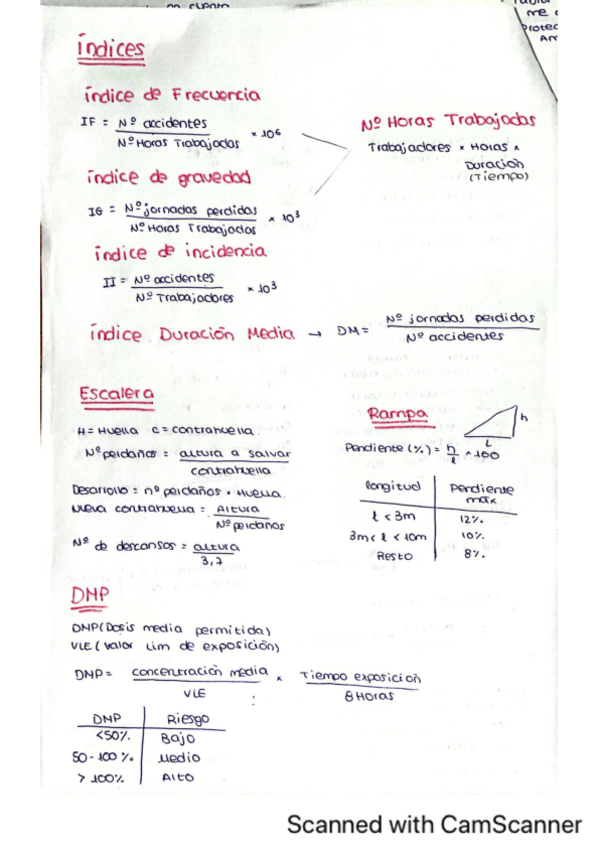 me
Índices
Índice de Frecuencia
IF = Nº accidentes / Nº Horas Trabajadas × 10⁶
Nº Horas Trabajadas
Trabajadores × Horas × Duración (Tiempo)
Índice de gravedad
IG = Nº jornadas perdidas / Nº Horas Trabajadas × 10³
índice de incidencia
II = Nº accidentes / Nº Trabajadores × 10³
índice Duración Media → DM = Nº jornadas perdidas / Nº accidentes
Escalera
H = Huella C = contrahuella.
Nº peldaños = altura a salvar / contrahuella
Desarrollo = nº peldaños × Huella.
Nueva contrahuella = Altura / Nº peldaños
Nº de descansos = altura / 3,7
Rampa
h
L
Pendiente (%) = h / l × 100
longitud | Pendiente max
l < 3m | 12%
3m < l < 10m | 10%
Resto | 8%
DMP
DMP (Dosis media permitida)
VLE (Valor Lim de exposición)
DMP = concentración media / VLE × Tiempo exposicion / 8 Horas
DMP | Riesgo
<50% | Bajo
50 - 100 % | Medio
> 100% | Alto
Scanned with CamScanner